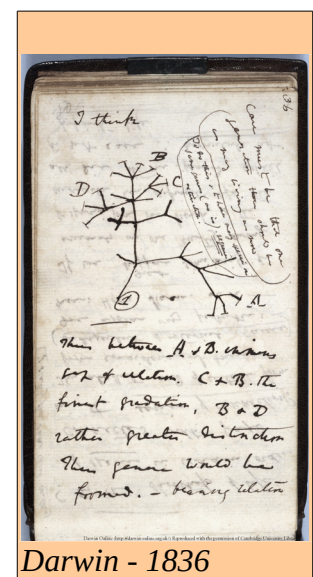 36
I think
Case must be that one
generation then should be
as many living as now
To do this & to have many species in
same genus (as is) requires
extinction.
B
D
C
A
1
Thus between A & B. immens
gap of relation. C & B. the
finest gradation, B & D
rather greater distinction
Thus genera would be
formed. — bearing relation
Darwin Online (http://darwin-online.org.uk/) Reproduced with the permission of Cambridge University Library
Darwin - 1836